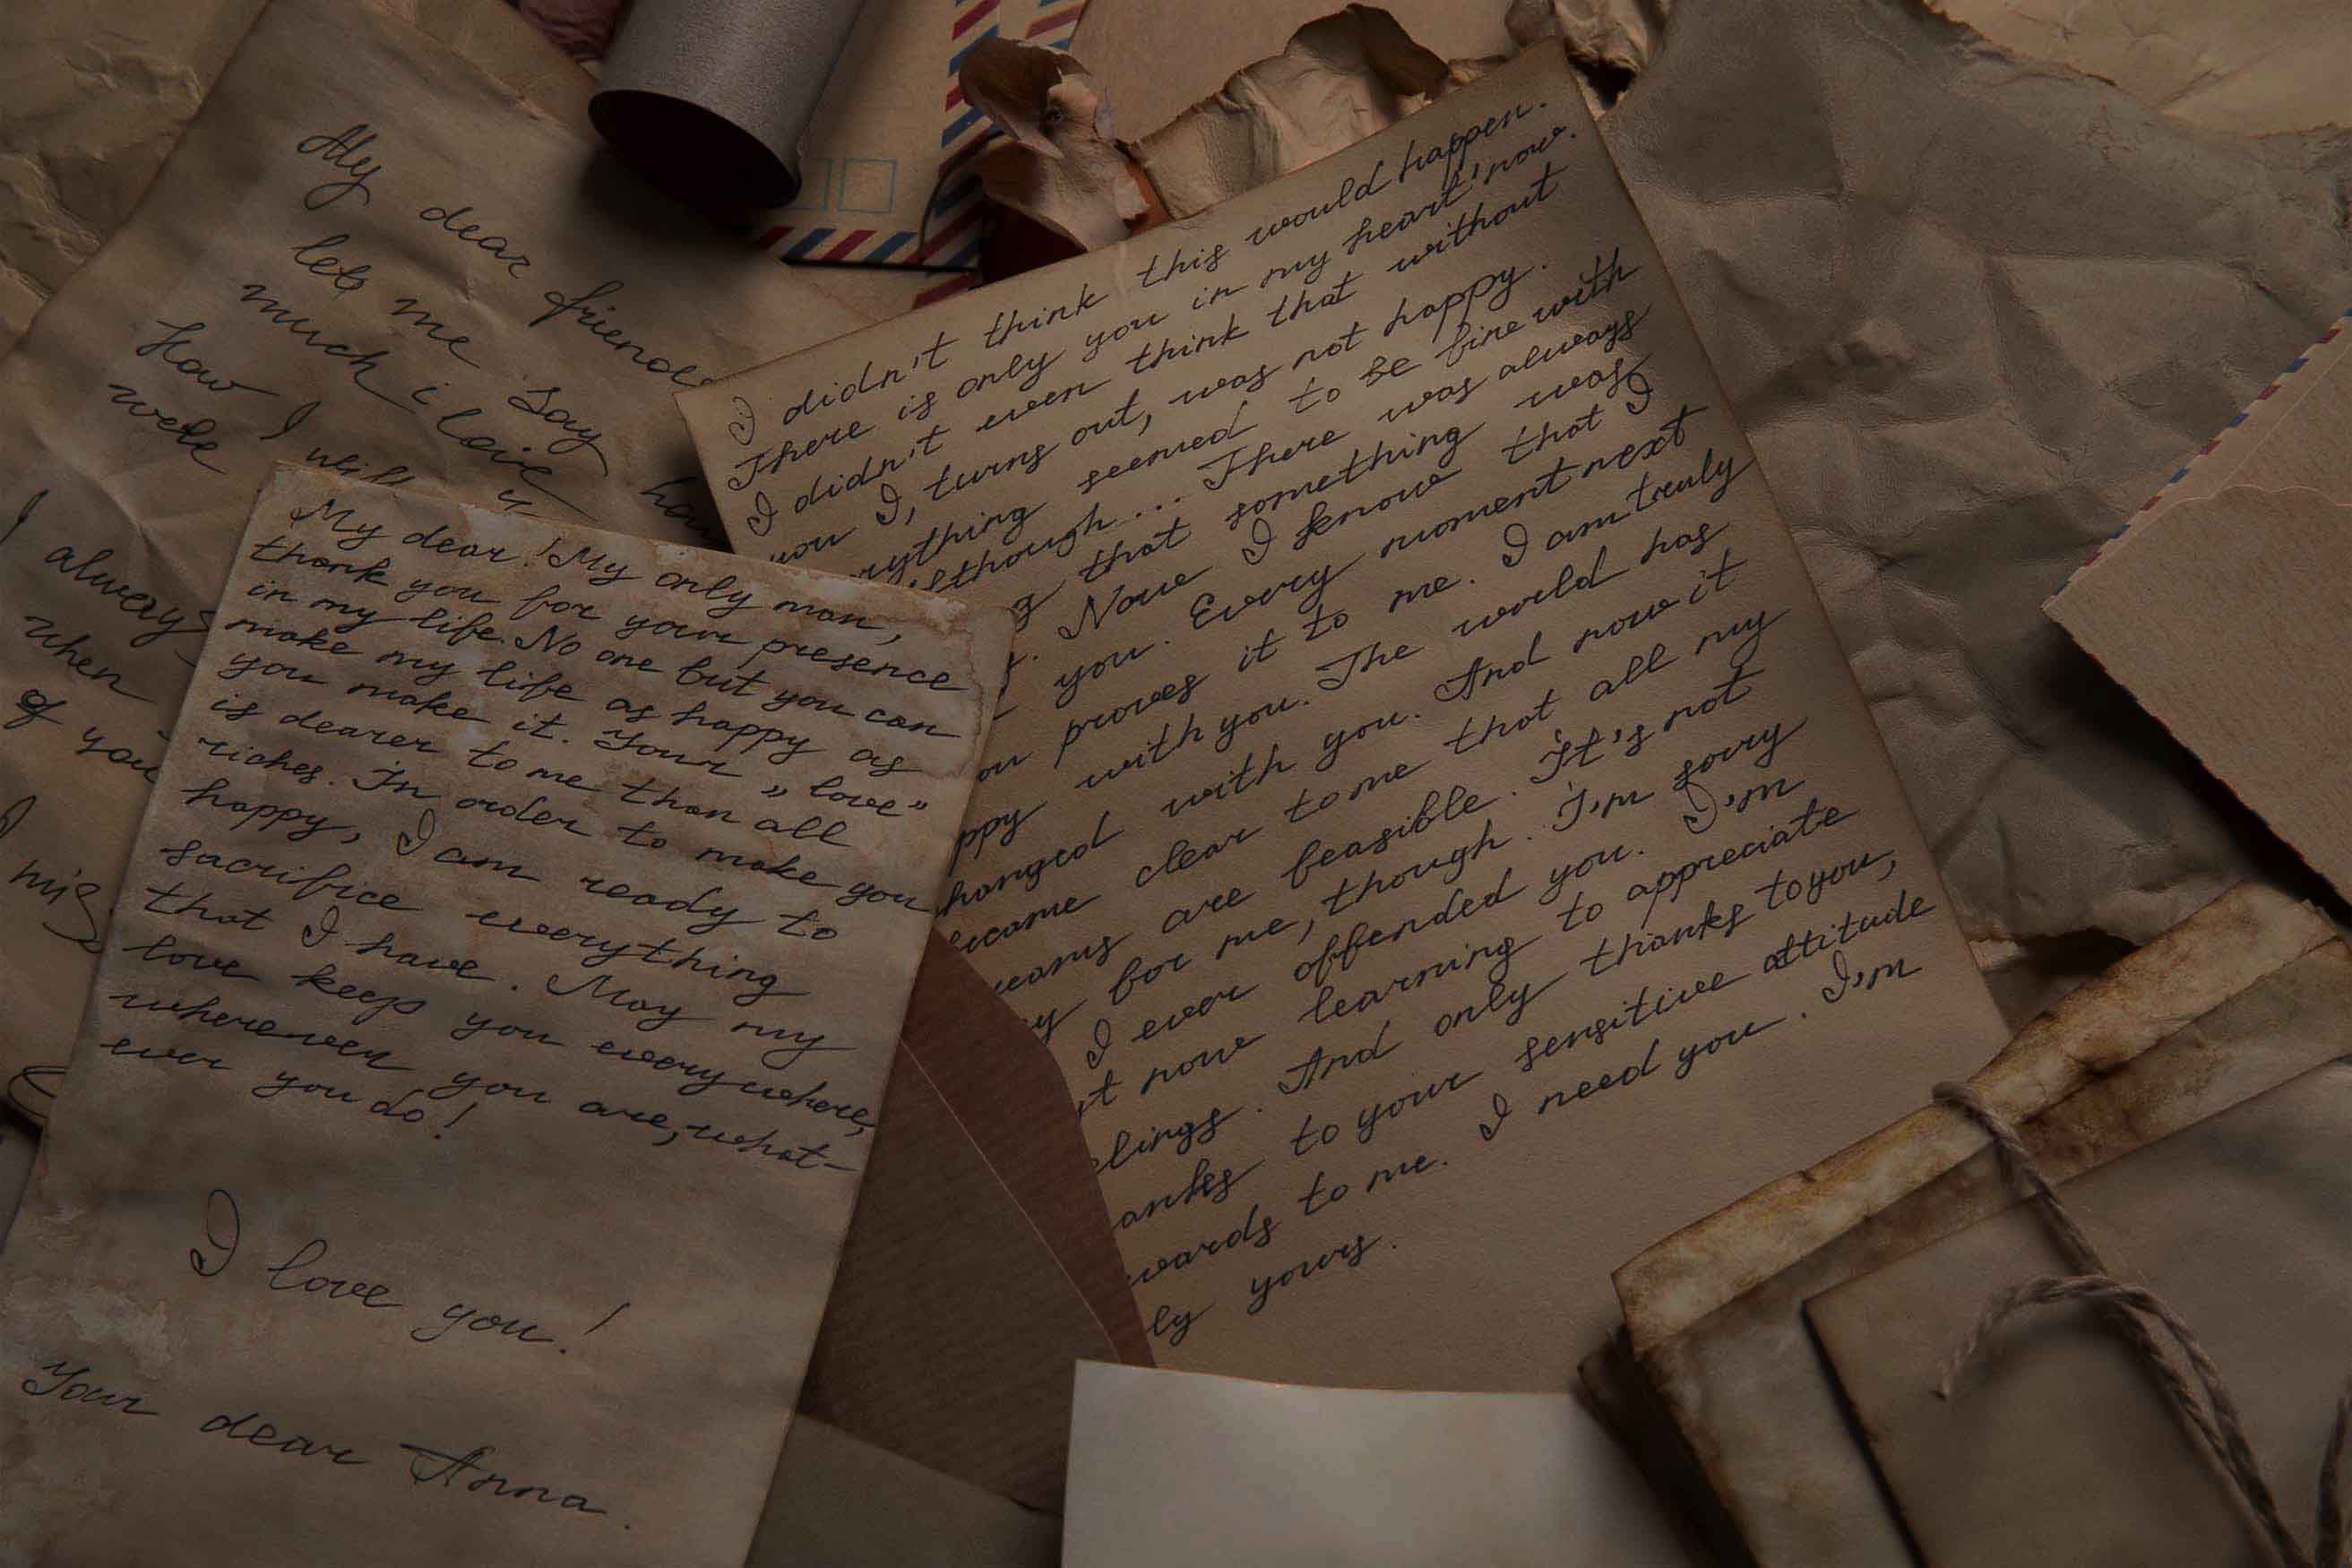 My dear friend
let me say
much i love
how I will y
were
how
I
always
when
of you
I
mis
My dear! My only man,
thank you for your presence
in my life. No one but you can
make my life as happy as
you make it. Your „love”
is dearer to me than all
riches. In order to make you
happy, I am ready to
sacrifice everything
that I have. May my
love keep you everywhere,
wherever you are, what-
ever you do!
I love you!
Your dear Anna.
I didn't think this would happen.
There is only you in my heart now.
I didn't even think that without
you I, turns out, was not happy.
rything seemed to be fine with
lthough... There was always
g that something was
t. Now I know that I
you. Every moment next
ou proves it to me. I am truly
ppy with you. The world has
hanged with you. And now it
ecame clear to me that all my
reams are feasible. It's not
y for me, though. I'm sorry
I ever offended you. I'm
st now learning to appreciate
elings. And only thanks to you,
anks to your sensitive attitude
wards to me. I need you. I'm
ly yours.